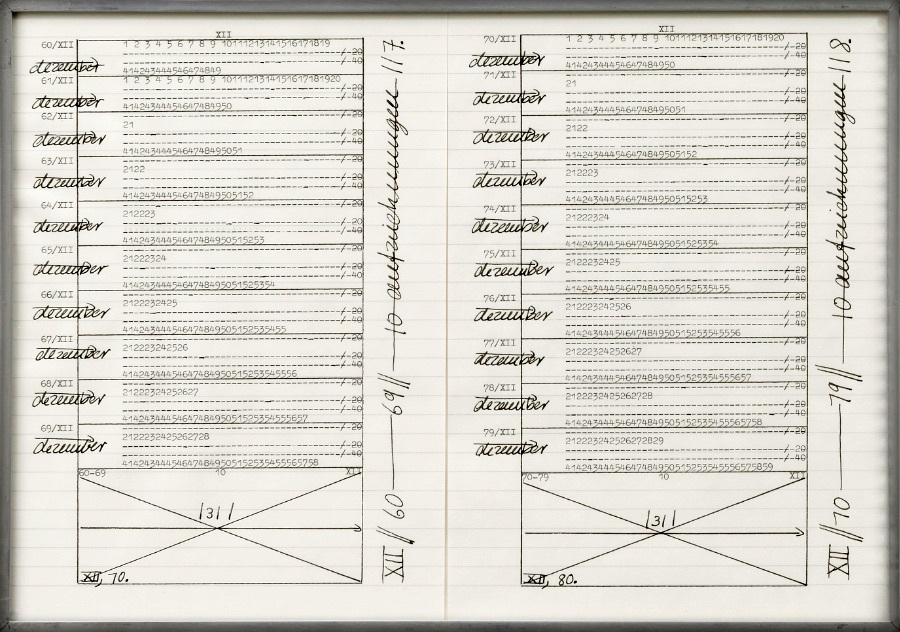 XII
60/XII 1 2 3 4 5 6 7 8 9 10111213141516171819
/-20
/-40
dezember
414243444546474849
61/XII 1 2 3 4 5 6 7 8 9 1011121314151617181920
/-20
/-40
dezember
41424344454647484950
62/XII 21
/-20
/-40
dezember
4142434445464748495051
63/XII 2122
/-20
/-40
dezember
414243444546474849505152
64/XII 212223
/-20
/-40
dezember
41424344454647484950515253
65/XII 21222324
/-20
/-40
dezember
4142434445464748495051525354
66/XII 2122232425
/-20
/-40
dezember
414243444546474849505152535455
67/XII 212223242526
/-20
/-40
dezember
41424344454647484950515253545556
68/XII 21222324252627
/-20
/-40
dezember
4142434445464748495051525354555657
69/XII 2122232425262728
/-20
/-40
dezember
414243444546474849505152535455565758
60-69 10 XII
|31|
XII, 70.
XII//60—69//—10 aufzeichnungen—117.
XII
70/XII 1 2 3 4 5 6 7 8 9 1011121314151617181920
/-20
/-40
dezember
41424344454647484950
71/XII 21
/-20
/-40
dezember
4142434445464748495051
72/XII 2122
/-20
/-40
dezember
414243444546474849505152
73/XII 212223
/-20
/-40
dezember
41424344454647484950515253
74/XII 21222324
/-20
/-40
dezember
4142434445464748495051525354
75/XII 2122232425
/-20
/-40
dezember
414243444546474849505152535455
76/XII 212223242526
/-20
/-40
dezember
41424344454647484950515253545556
77/XII 21222324252627
/-20
/-40
dezember
4142434445464748495051525354555657
78/XII 2122232425262728
/-20
/-40
dezember
414243444546474849505152535455565758
79/XII 212223242526272829
/-20
/-40
dezember
41424344454647484950515253545556575859
70-79 10 XII
|31|
XII, 80.
XII//70—79//—10 aufzeichnungen—118.